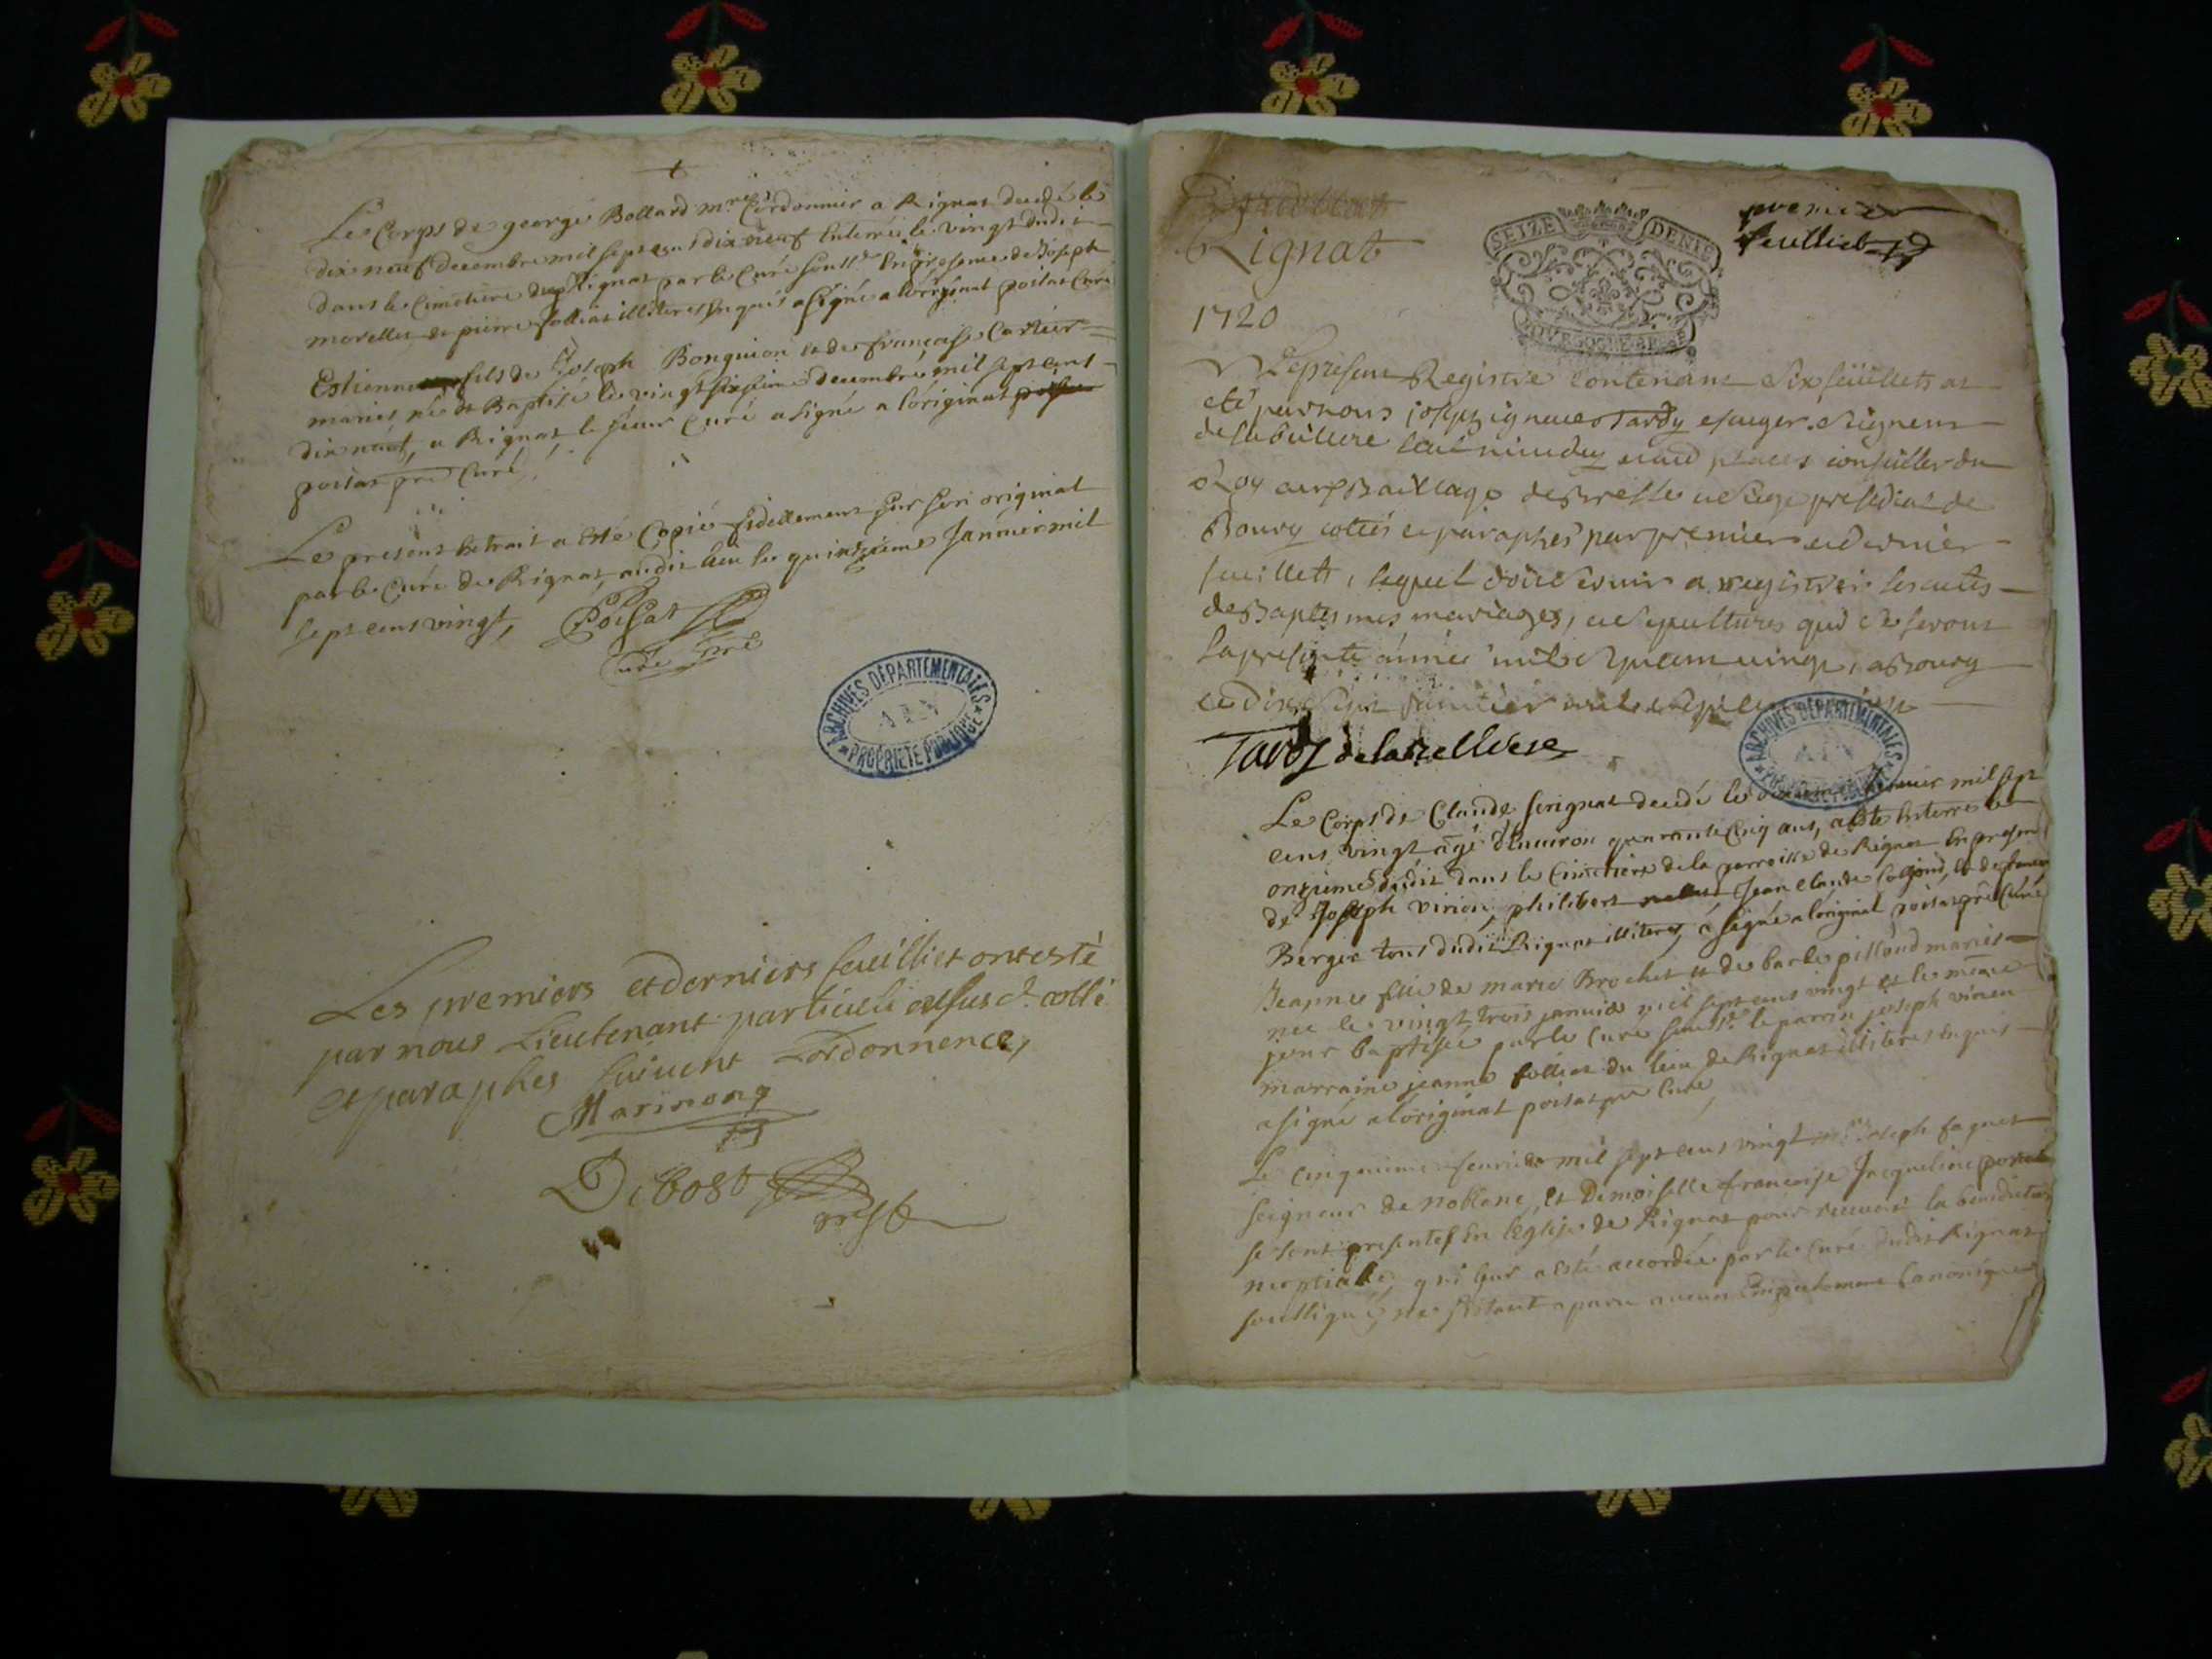 Le Corps de george Bollard mre Cordonnier a Rignat decedé le
dix neuf decembre mil sept cens dix neuf Enterré le vingt dudit
dans le Cimetiere du Rignat par le Curé souss. En presence de Joseph
morellet et pierre folliat illiteres Enquis a signé a l'original poisat Curé
Estienne fils de Joseph Bonguion et de françoise Cartier
mariés, né et Baptisé le vingt sixieme decembre mil sept cens
dix neuf, a Rignat le sieur Curé a signé a l'original
poisat pre Curé
Le present Extrait a esté Copié fidellement sur son original
par le Curé de Rignat, audit lieu le quinzieme Janvier mil
sept cens vingt, Poisat
Curé pre
ARCHIVES DÉPARTEMENTALES
AIN
PROPRIETE PUBLIQUE
Les premiers et derniers feuilliet ont esté
par nous Lieutenant particulié assus d. cotté
et paraphes suivent Lordonnence,
Marinong
Debost
Rignat
SEIZE DENIE
premier
feuilliet
1720
Le present Registre contenant six feüillets at
eté par nous Tardy escuyer Seigneur
de la conseiller du
Roy au Baillage de Bresse et siege presidial de
Bourg cottés et paraphés par premier et dernier
feuillets, lequel doit servir a registrer les actes
de Baptesmes mariages, et sepultures qui se feront
la presente année mil sept cent vingt, a Bourg
ce dix sept janvier mil sept cent vingt
Tardy de la
ARCHIVES DÉPARTEMENTALES
AIN
Le Corps de Claude serignat decedé le janvier mil sept
cens vingt agé d'Environ quarante Cinq ans, a esté Enterré le
onzieme dudit dans le Cimetiere de la parroisse de Rignat En presence
de Joseph virion, philibert Jean Claude et de
Berger tous dudit Rignat illiteres, a signé a l'original poisat pre Curé
Jeanne fille de marie Brochet et de barbe pilloud mariés
née le vingt trois janvier mil sept cens vingt et le même
jour baptisée par le Curé souss. le parrin joseph virion
marraine jeanne folliat du lieu de Rignat illiteres Enquis
a signé a l'original poisat pre Curé,
Le Cinquieme fevrier mil sept cens vingt Joseph faguet
seigneur de noblans, et Demoiselle francoise Jacqueline
se sont presentes En l'eglise de Rignat pour recevoir la benediction
nuptiale, qui leur a esté accordée par le Curé dudit Rignat
soussigné, ne s'Estant aparu aucun Empechement Canonique